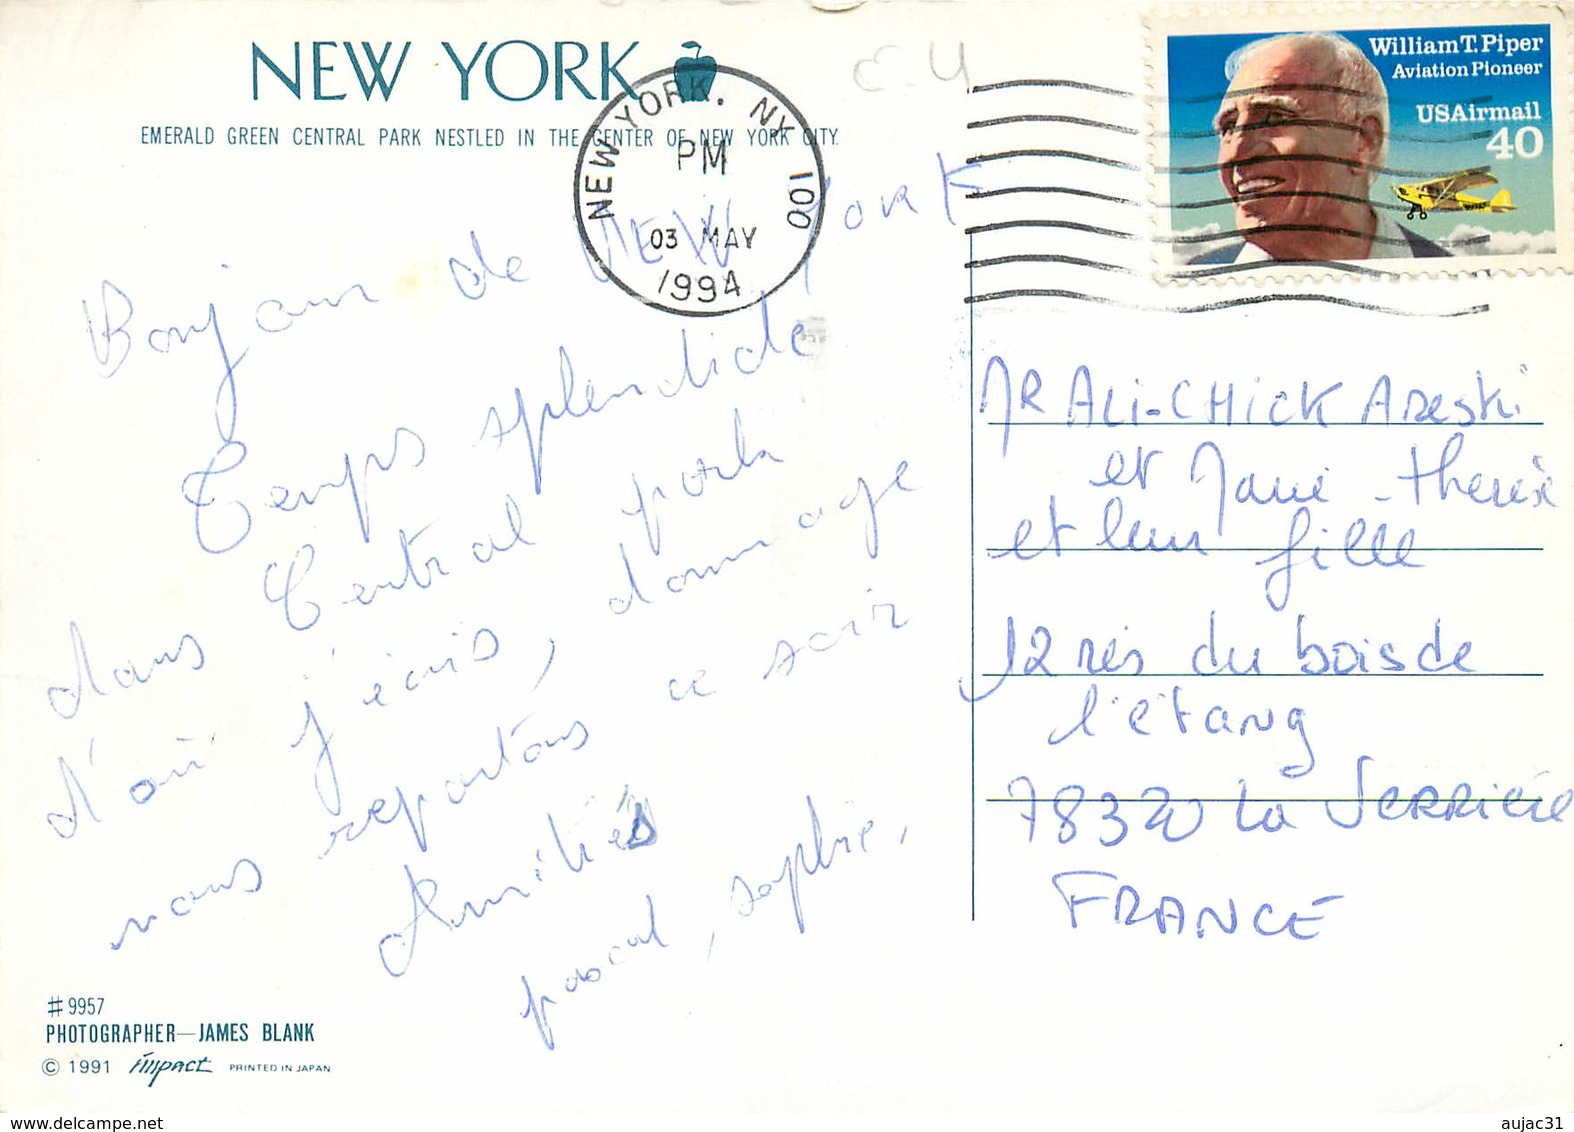 NEW YORK
EMERALD GREEN CENTRAL PARK NESTLED IN THE CENTER OF NEW YORK CITY.
NEW YORK, NY 100
PM
03 MAY
1994
William T. Piper
Aviation Pioneer
USAirmail
40
Bonjour de NEW York
Temps splendide
dans Central park
d'où j'écris, dommage
nous repartons ce soir
Amitiés
pascal, sophie,
MR ALI-CHICK Areski
et Marie-therese
et leur fille
12 res du bois de
l'étang
78320 La Verrière
FRANCE
#9957
PHOTOGRAPHER—JAMES BLANK
© 1991 impact PRINTED IN JAPAN
www.delcampe.net
aujac31